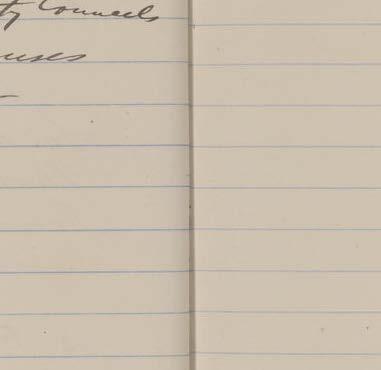 ty Councils
uses